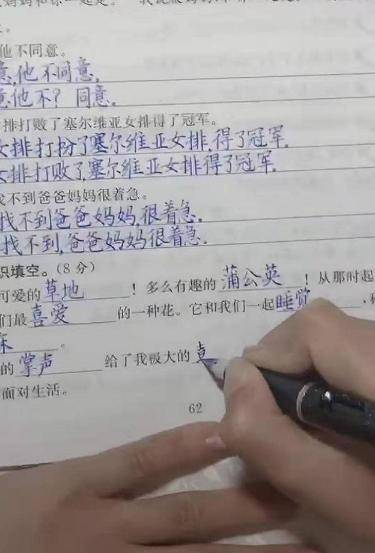 他不同意。
意,他不同意。
意他不? 同意。
排打败了塞尔维亚女排得了冠军。
女排打败了塞尔维亚女排,得了冠军.
女排打败了,塞尔维亚女排得了冠军.
找不到爸爸妈妈很着急。
找不到爸爸妈妈,很着急.
找不到,爸爸妈妈很着急.
识填空。(8分)
可爱的 草地 !多么有趣的 蒲公英 !从那时起
们最 喜爱 的一种花。它和我们一起 睡觉 ,
床 。
的 掌声 给了我极大的
面对生活。
62